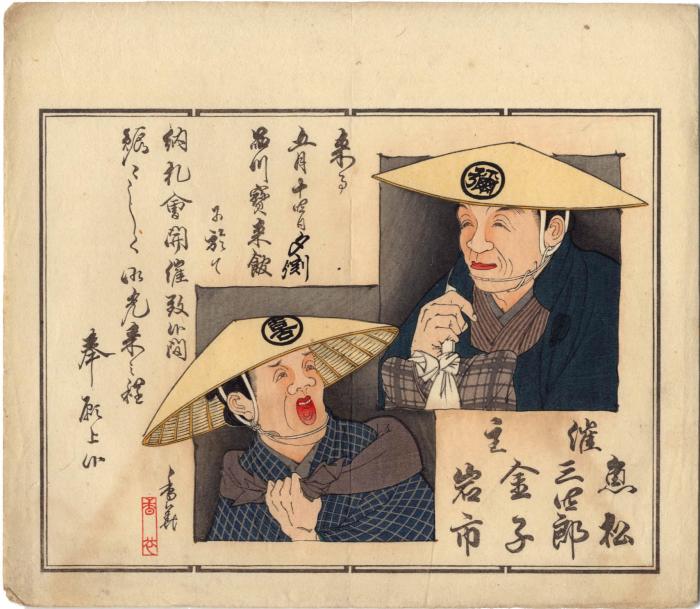 来る
五月十四日夕刻
品川寶来館
に於て
納札會開催致候間
賑々しく御光来之程
奉願上候
彌
喜
催主
松
三四郎
金子
岩市